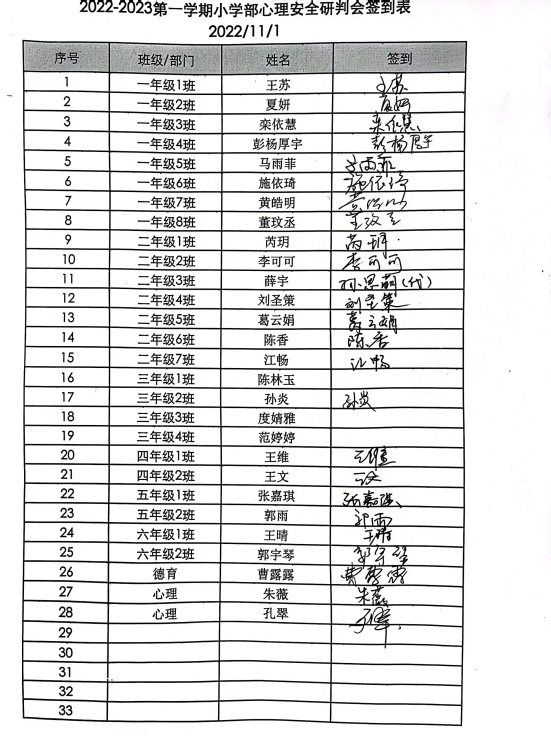 2022-2023第一学期小学部心理安全研判会签到表
2022/11/1
序号 班级/部门 姓名 签到
1 一年级1班 王苏 王苏
2 一年级2班 夏妍 夏妍
3 一年级3班 栾依慧 栾依慧
4 一年级4班 彭杨厚宇 彭杨厚宇
5 一年级5班 马雨菲 马雨菲
6 一年级6班 施依琦 施依琦
7 一年级7班 黄皓明 黄皓明
8 一年级8班 董玟丞
9 二年级1班 芮玥 芮玥
10 二年级2班 李可可 李可可
11 二年级3班 薛宇 孙思萌(代)
12 二年级4班 刘圣策 刘圣策
13 二年级5班 葛云娟 葛云娟
14 二年级6班 陈香 陈香
15 二年级7班 江畅 江畅
16 三年级1班 陈林玉
17 三年级2班 孙炎 孙炎
18 三年级3班 度婧雅
19 三年级4班 范婷婷
20 四年级1班 王维 王维
21 四年级2班 王文 王文
22 五年级1班 张嘉琪 张嘉琪
23 五年级2班 郭雨 郭雨
24 六年级1班 王晴 王晴
25 六年级2班 郭宇琴 郭宇琴
26 德育 曹露露 曹露露
27 心理 朱薇 朱薇
28 心理 孔翠 孔翠
29
30
31
32
33